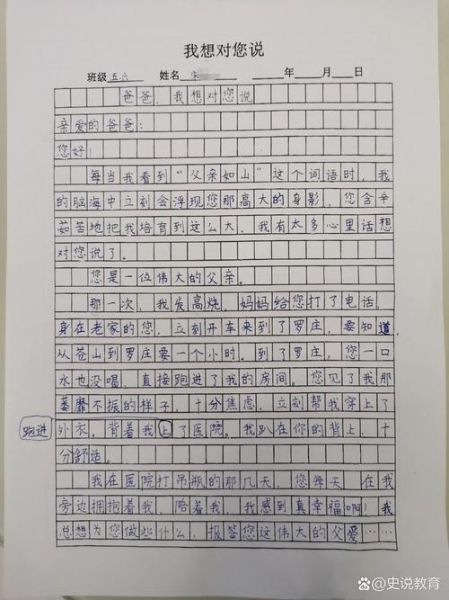 我想对您说
班级 五六 姓名 宋 年 月 日
爸爸,我想对您说
亲爱的爸爸:
您好!
每当我看到“父亲如山”这个词语时,我
的脑海中立刻会浮现您那高大的身影,您含辛
茹苦地把我培育到这么大,我有太多心里话想
对您说了。
您是一位伟大的父亲。
那一次,我发高烧,妈妈给您打了电话,
身在老家的您,立刻开车来到了罗庄,要知道
从苍山到罗庄要一个小时。到了罗庄,您一口
水也没喝,直接跑进了我的房间。您见了我那
萎靡不振的样子,十分焦虑,立刻帮我穿上了
跑进 外衣,背着我上了医院。我趴在你的背上,十
分舒适。
我在医院打吊瓶的那几天,您每天在我
旁边拥抱着我,陪着我,我感到真幸福啊!我
总想为您做些什么,报答您这伟大的父爱……
头条 @史说教育